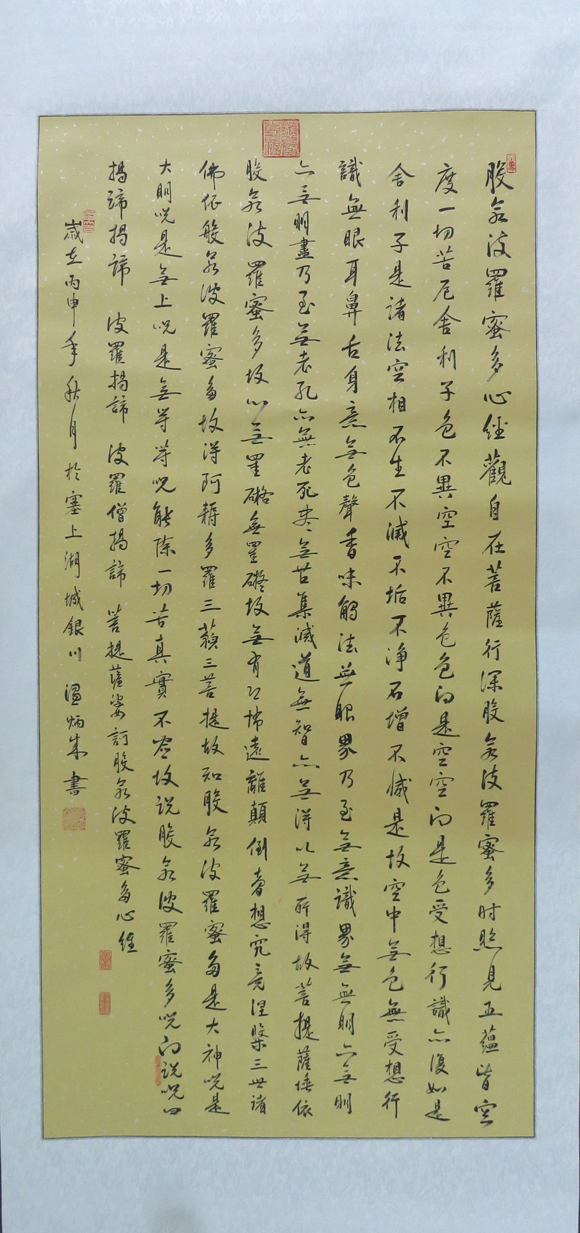 般若波羅蜜多心經觀自在菩薩行深般若波羅蜜多时照見五蘊皆空
度一切苦厄舍利子色不異空空不異色色即是空空即是色受想行識亦復如是
舍利子是諸法空相不生不滅不垢不净不增不減是故空中無色無受想行
識無眼耳鼻舌身意無色聲香味觸法無眼界乃至無意識界無無明亦無明
亦無明盡乃至無老死亦無老死盡無苦集滅道無智亦無得以無所得故菩提薩埵依
般若波羅蜜多故心無罣礙無罣礙故無有恐怖遠離顛倒夢想究竟涅槃三世諸
佛依般若波羅蜜多故得阿耨多羅三藐三菩提故知般若波羅蜜多是大神咒是
大明咒是無上咒是無等等咒能除一切苦真實不虛故説般若波羅蜜多咒即説咒曰
揭諦揭諦 波羅揭諦 波羅僧揭諦 菩提薩婆訶般若波羅蜜多心經
歲在丙申年秋月於塞上湖城銀川 温炳成書